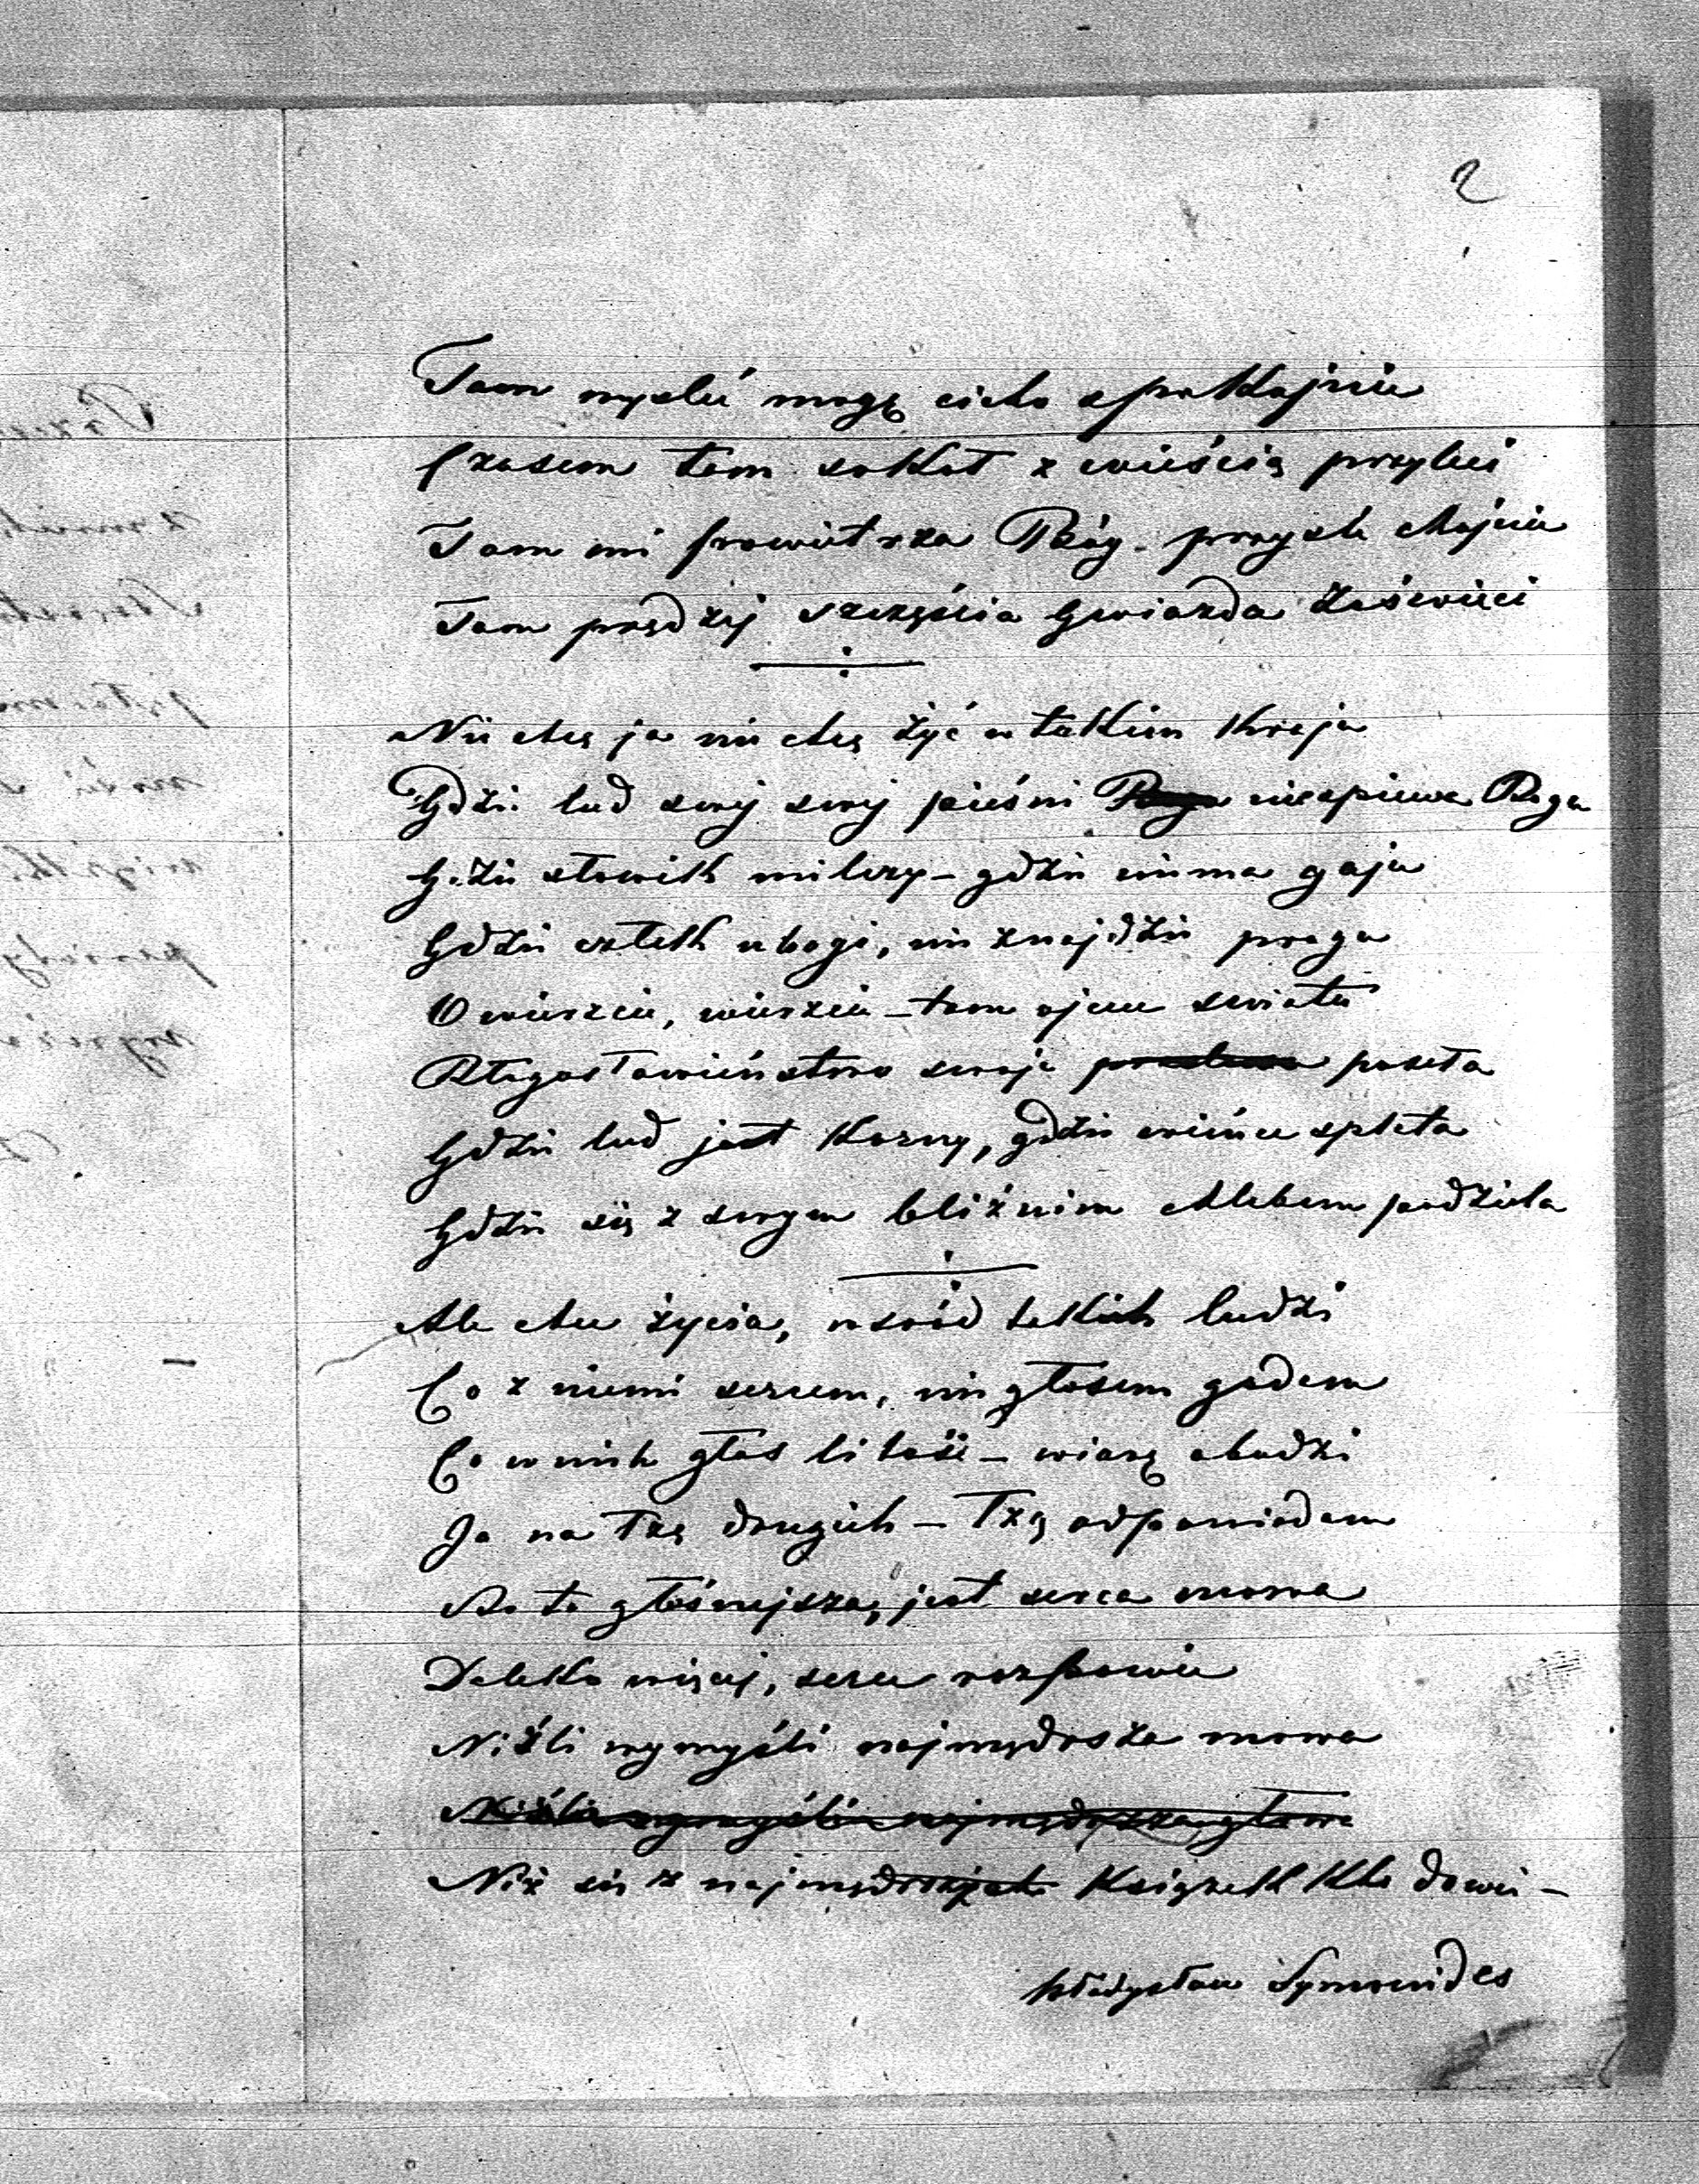 2
Tam mysleć mogę cicho spokojnie
Czasem tam sokoł z wieścią przyleci
Tam mi powietrza Bóg przyśle hojnie
Tam prędzej szczęścia Gwiazda zaświeci
Nie chcę ja nie chcę żyć w takiem Kraju
Gdzie lud swej swej pieśni Boga niespiewa Boga
Gdzie słowik milczy – gdzie niema gaju
Gdzie człek ubogi, nie znajdzie proga
O wierzcie, wierzcie – tam ojciec świata
Błogosławieństwo swoje posyła
Gdzie lud jest Korny, gdzie wieńce splata
Gdzie się z swym bliźnim chlebem podziela
Ale chcę życia, wśród takich ludzi
Co z niemi sercem, nie głosem gadam
Co w nich głos litość – wiarę obudzi
Ja na łzę drugich – łzą odpowiadam
Bo to głośniejsza, jest serca mowa
Daleko więcej, serce rozpowie
Niżli wymyśli najmędrsza mowa
Niżli wymyśli najmędrsza głowa
Niż się z najmędrszych Książek Kto dowie –
Władysław Symonides